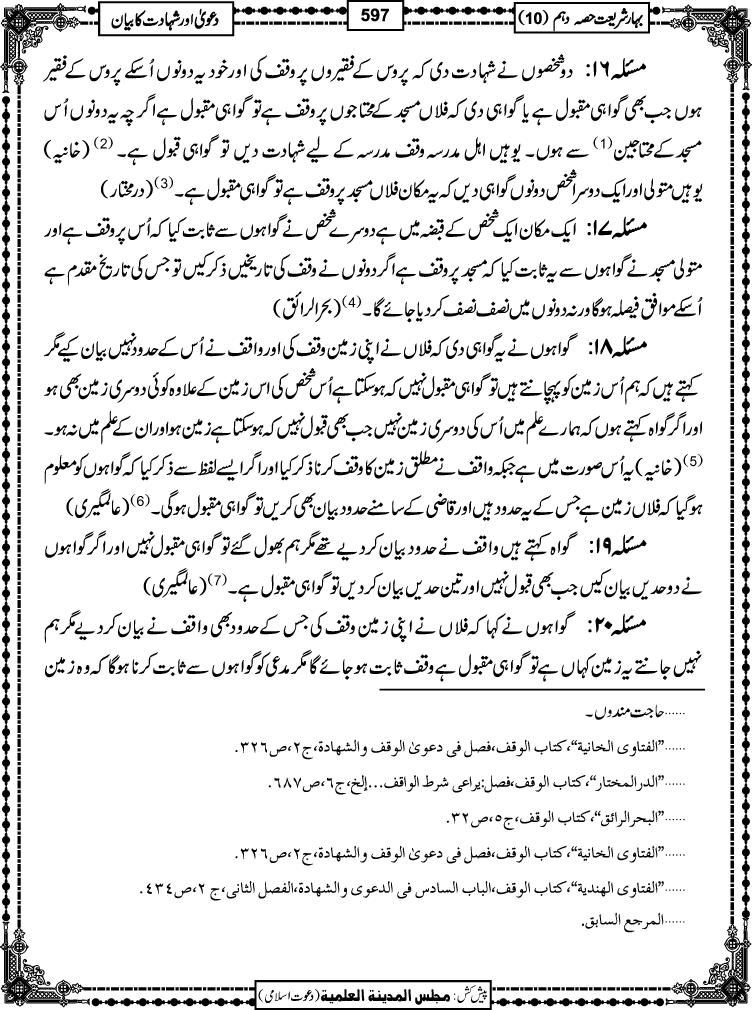 بہارِ شریعت حصہ دہم (10)
597
دعویٰ اور شہادت کا بیان
مسئلہ ۱۶: دو شخصوں نے شہادت دی کہ پروس کے فقیروں پر وقف کی اور خود یہ دونوں اُسکے پروس کے فقیر
ہوں جب بھی گواہی مقبول ہے یا گواہی دی کہ فلاں مسجد کے محتاجوں پر وقف ہے تو گواہی مقبول ہے اگرچہ یہ دونوں اُس
مسجد کے محتاجین (1) سے ہوں۔ یوہیں اہلِ مدرسہ وقفِ مدرسہ کے لیے شہادت دیں تو گواہی قبول ہے۔ (2) (خانیہ)
یوہیں متولی اور ایک دوسرا شخص دونوں گواہی دیں کہ یہ مکان فلاں مسجد پر وقف ہے تو گواہی مقبول ہے۔ (3) (درمختار)
مسئلہ ۱۷: ایک مکان ایک شخص کے قبضہ میں ہے دوسرے شخص نے گواہوں سے ثابت کیا کہ اُس پر وقف ہے اور
متولی مسجد نے گواہوں سے یہ ثابت کیا کہ مسجد پر وقف ہے اگر دونوں نے وقف کی تاریخیں ذکر کیں تو جس کی تاریخ مقدم ہے
اُسکے موافق فیصلہ ہوگا ورنہ دونوں میں نصف نصف کر دیا جائے گا۔ (4) (بحرالرائق)
مسئلہ ۱۸: گواہوں نے یہ گواہی دی کہ فلاں نے اپنی زمین وقف کی اور واقف نے اُس کے حدود نہیں بیان کیے مگر
کہتے ہیں کہ ہم اُس زمین کو پہچانتے ہیں تو گواہی مقبول نہیں کہ ہوسکتا ہے اُس شخص کی اس زمین کے علاوہ کوئی دوسری زمین بھی ہو
اور اگر گواہ کہتے ہوں کہ ہمارے علم میں اُس کی دوسری زمین نہیں جب بھی قبول نہیں کہ ہوسکتا ہے زمین ہو اور ان کے علم میں نہ ہو۔
(5) (خانیہ) یہ اُس صورت میں ہے جبکہ واقف نے مطلق زمین کا وقف کرنا ذکر کیا اور اگر ایسے لفظ سے ذکر کیا کہ گواہوں کو معلوم
ہوگیا کہ فلاں زمین ہے جس کے یہ حدود ہیں اور قاضی کے سامنے حدود بیان بھی کریں تو گواہی مقبول ہوگی۔ (6) (عالمگیری)
مسئلہ ۱۹: گواہ کہتے ہیں واقف نے حدود بیان کر دیے تھے مگر ہم بھول گئے تو گواہی مقبول نہیں اور اگر گواہوں
نے دو حدیں بیان کیں جب بھی قبول نہیں اور تین حدیں بیان کر دیں تو گواہی مقبول ہے۔ (7) (عالمگیری)
مسئلہ ۲۰: گواہوں نے کہا کہ فلاں نے اپنی زمین وقف کی جس کے حدود بھی واقف نے بیان کر دیے مگر ہم
نہیں جانتے یہ زمین کہاں ہے تو گواہی مقبول ہے وقف ثابت ہو جائے گا مگر مدعی کو گواہوں سے ثابت کرنا ہوگا کہ وہ زمین
......حاجت مندوں۔
......"الفتاوی الخانیة"،کتاب الوقف،فصل فی دعوی الوقف والشهادة،ج۲،ص۳۲۶.
......"الدرالمختار"،کتاب الوقف،فصل:یراعی شرط الواقف...إلخ،ج۶،ص۶۸۷.
......"البحرالرائق"،کتاب الوقف،ج۵،ص۳۲.
......"الفتاوی الخانیة"،کتاب الوقف،فصل فی دعوی الوقف والشهادة،ج۲،ص۳۲۶.
......"الفتاوی الهندیة"،کتاب الوقف،الباب السادس فی الدعوی والشهادة،الفصل الثانی،ج۲،ص۴۳۴.
......المرجع السابق.
پیش کش: مجلس المدینة العلمیة (دعوتِ اسلامی)